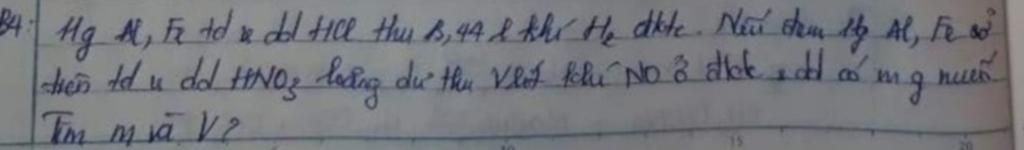 B4: 11g Al, Fe td v dd HCl thu 8,44 l khí H2 đktc. Nếu đem 11g Al, Fe ở
trên td v dd HNO3 loãng dư thu V lít khí NO ở đktc, dd có m g muối
Tìm m và V?